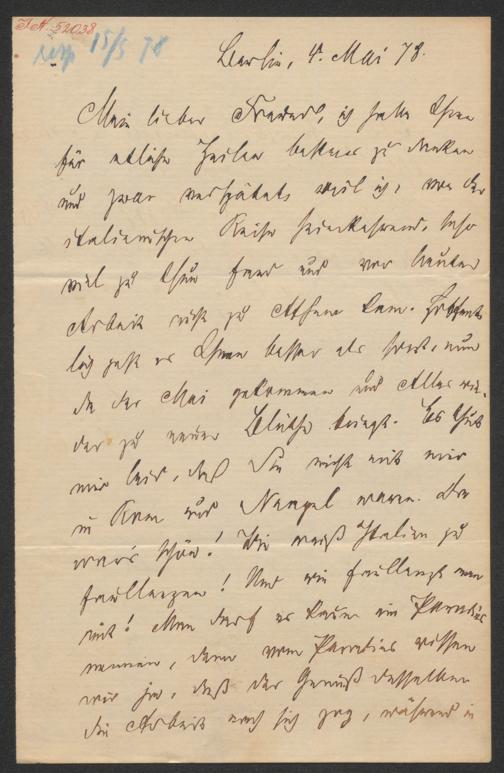 I. N. 52038
15/5 78
Berlin, 4. Mai 78.
Mein lieber Freund, ich habe Ihnen
für etliche Zeilen bestens zu danken
und zwar verspätet, weil ich, von der
italienischen Reise heimkehrend, sehr
viel zu thun fand und vor lauter
Arbeit nicht zu Athem kam. Hoffent-
lich geht es Ihnen besser als sonst, nun
da der Mai gekommen und Alles wie-
der zu neuer Blüthe bringt. Es thut
mir leid, daß Sie nicht mit mir
in Rom und Neapel waren. Da
war's schön! Wie weiß Italien zu
faullenzen! Und wie faullenzt man
mit! Man darf es kaum ein Paradies
nennen, denn vom Paradies wissen
wir ja, daß der Genuß desselben
die Arbeit nach sich zog, während in